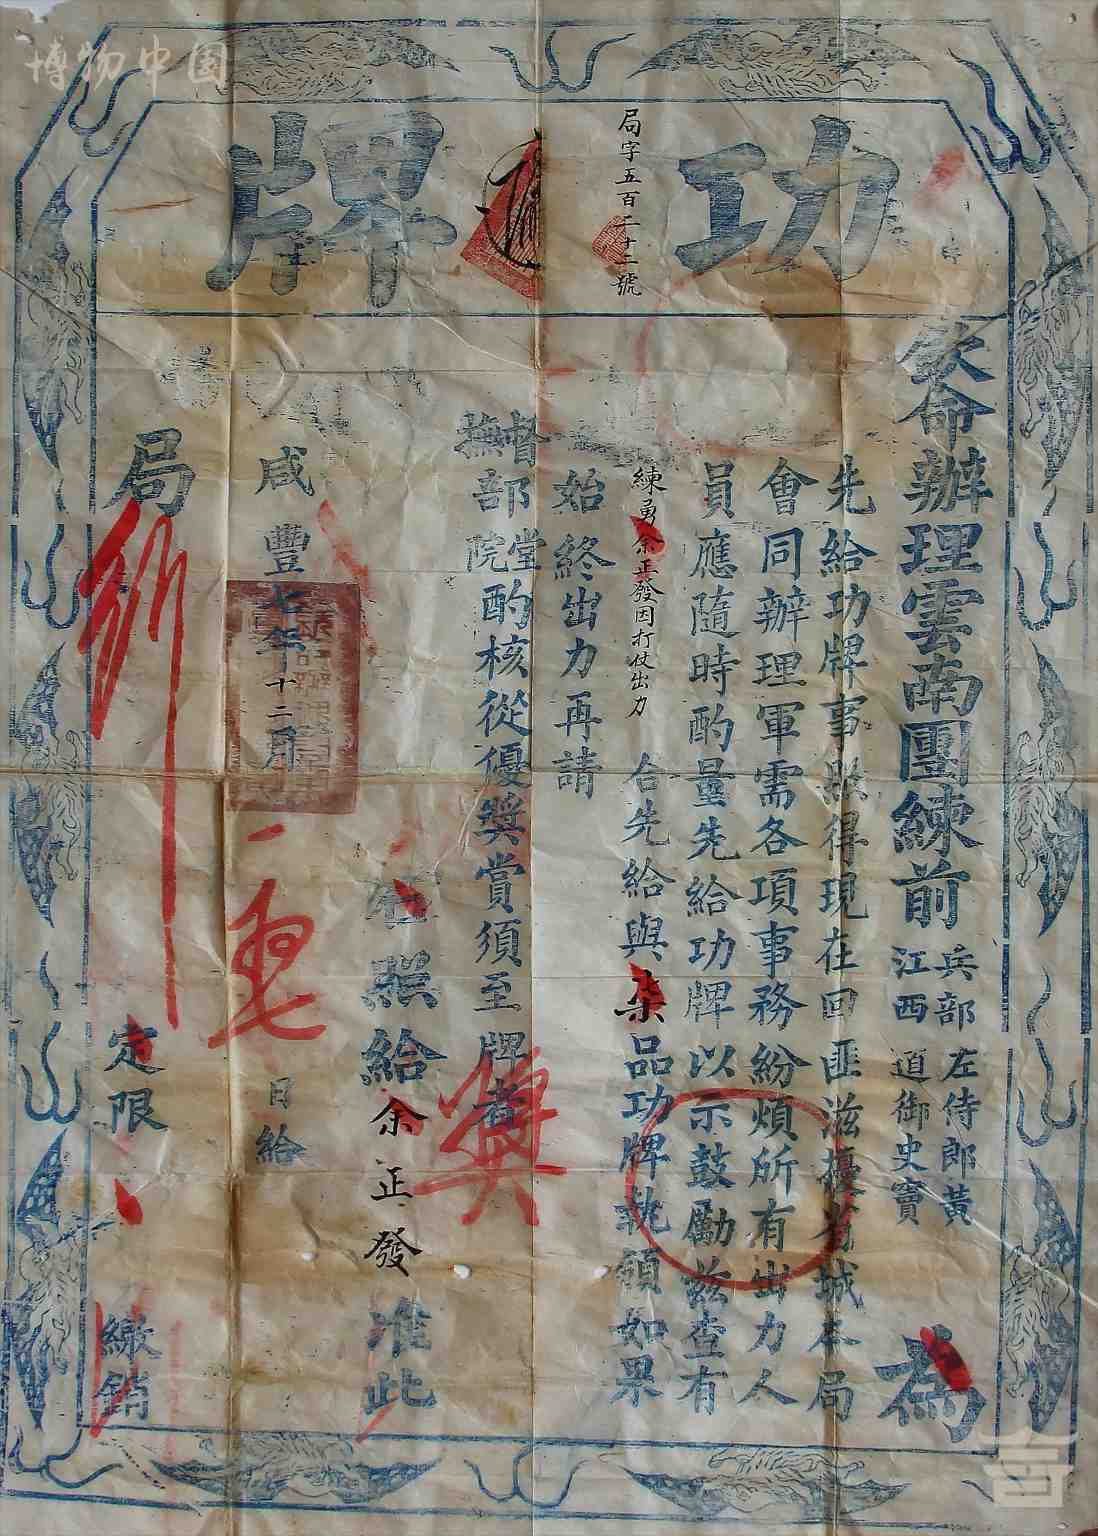 博物中国
功牌
局字五百二十二號
欽命辦理雲南團練前兵部左侍郎黃江西道御史竇為
先給功牌事照得現在回匪滋擾省城本局
會同辦理軍需各項事務紛煩所有出力人
員應隨時酌量先給功牌以示鼓勵茲查有
練勇余正發因打仗出力 合先給與柒品功牌執領如果
始終出力再請
督撫部堂院酌核從優獎賞須至牌者
右照給余正發准此
咸豐七年十二月 日給
局 定限 繳銷